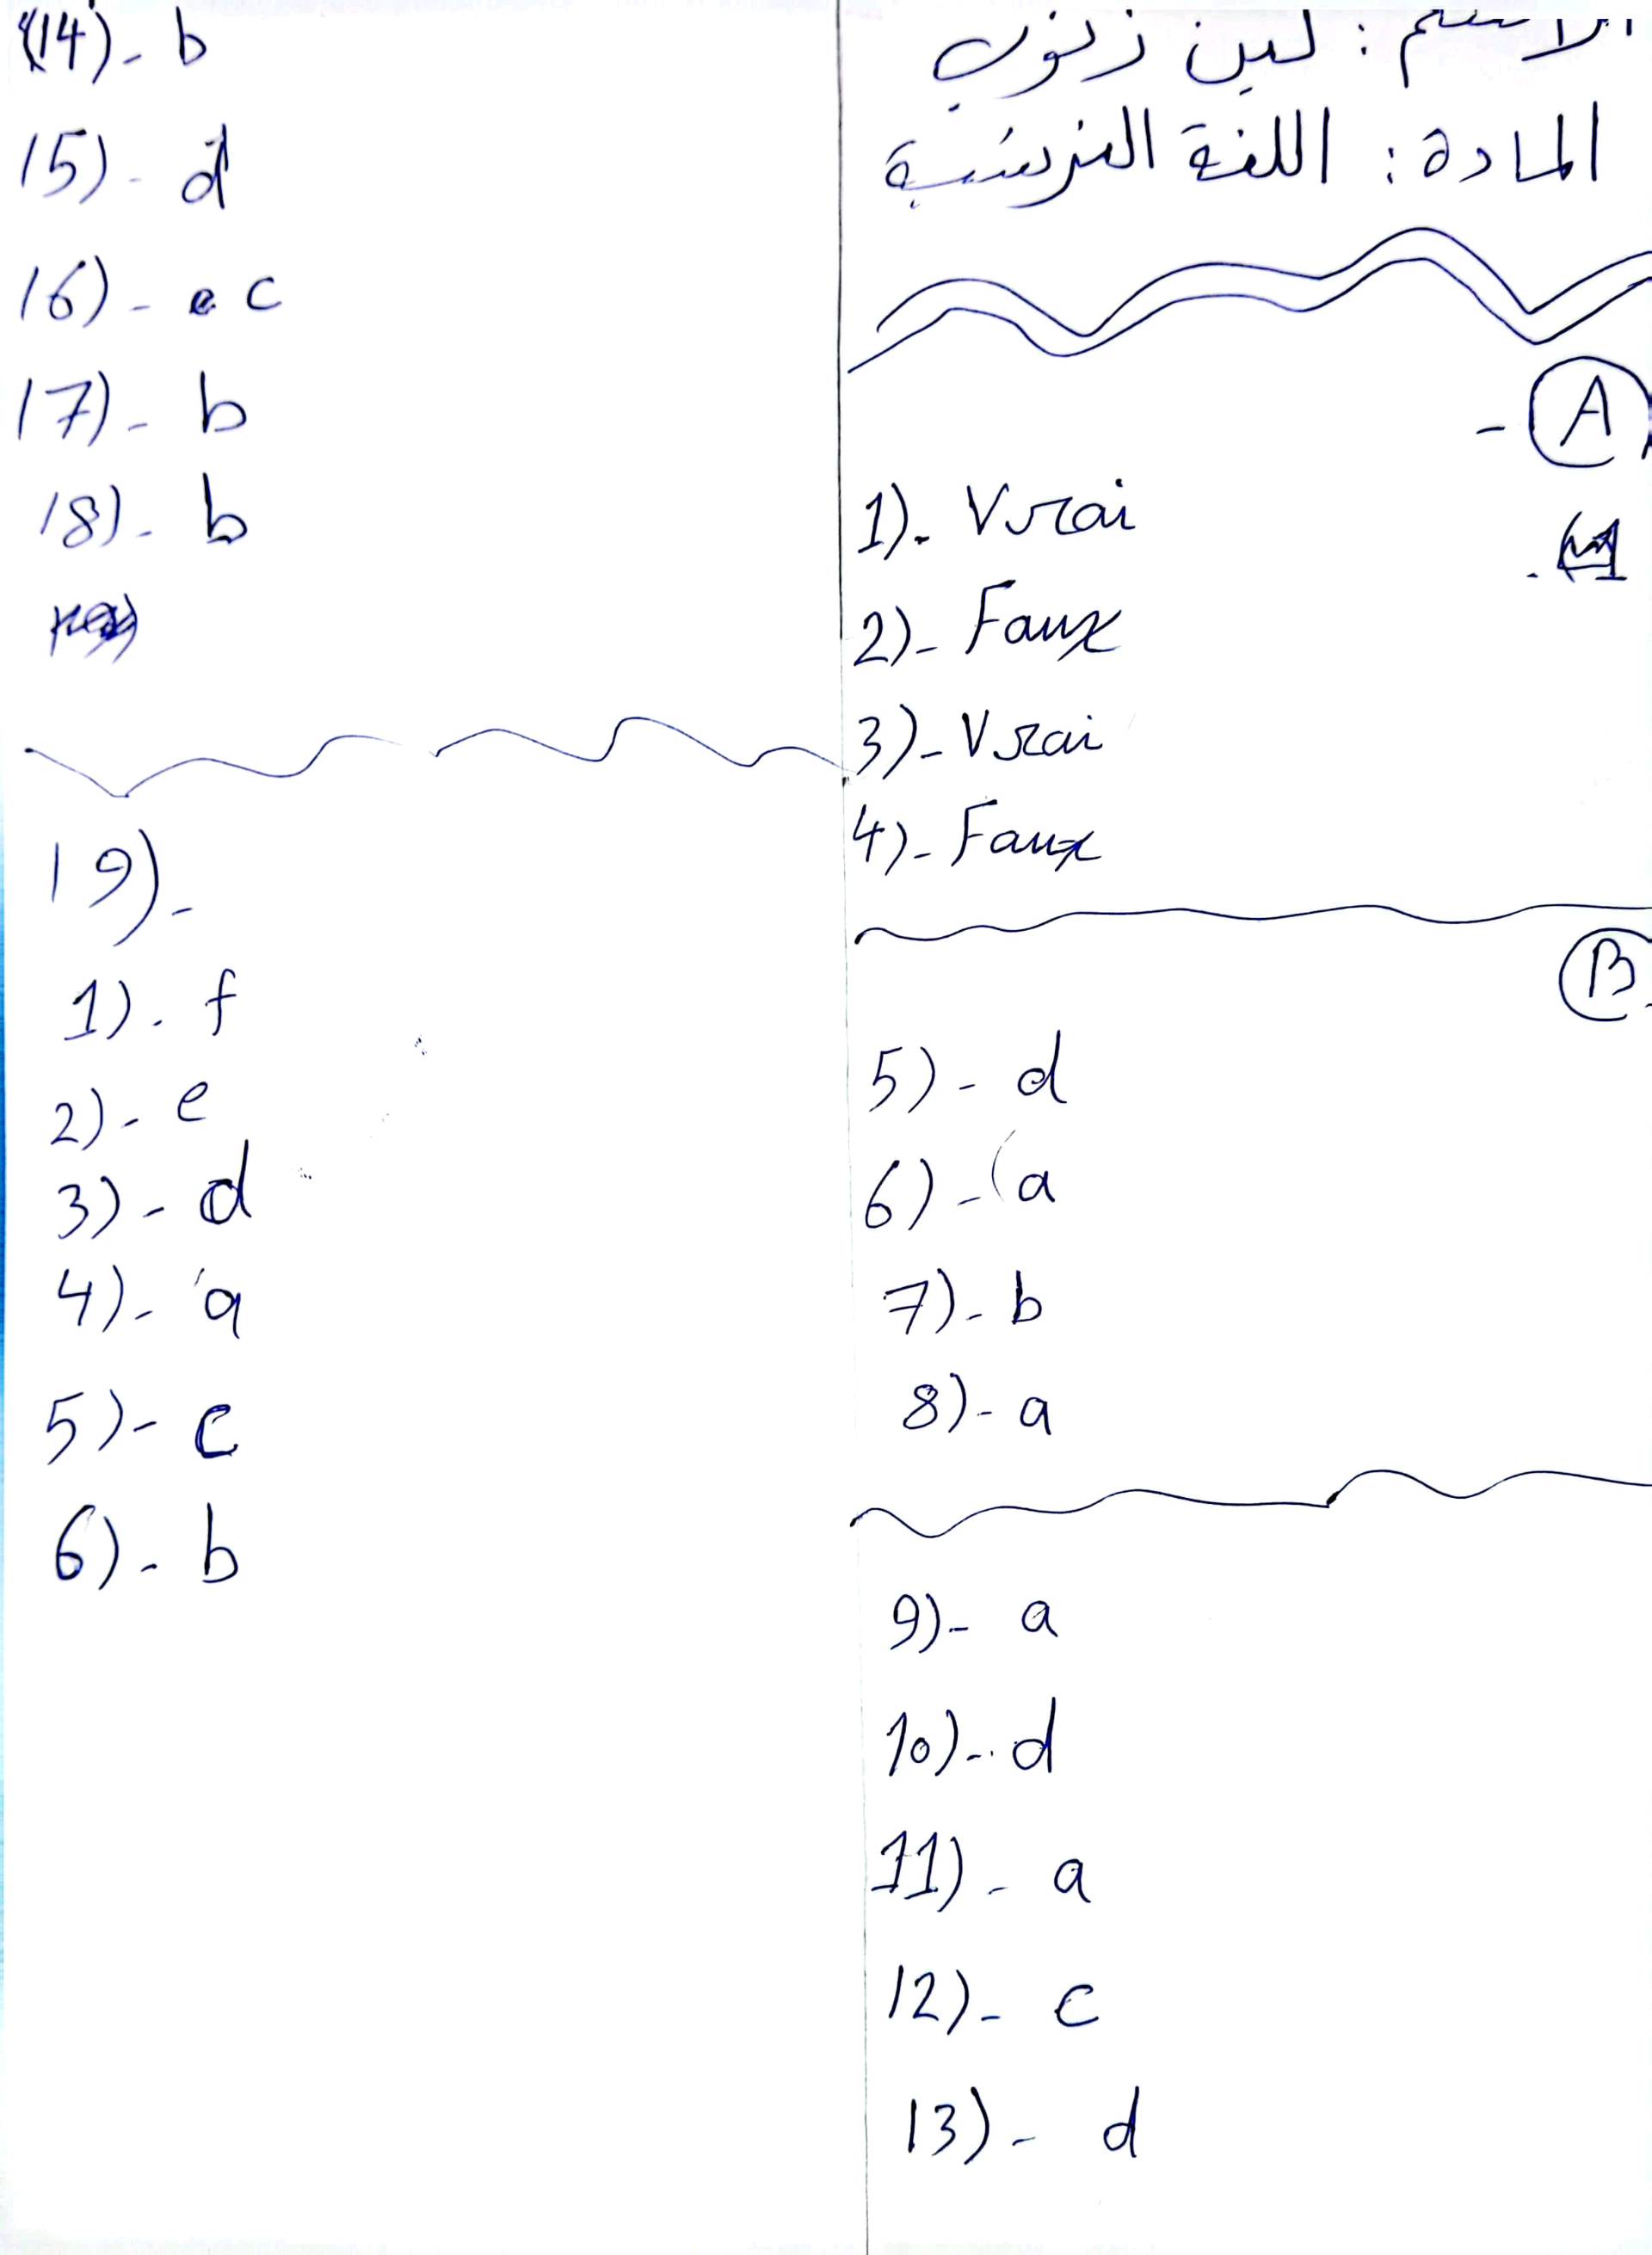 الاسم : لين زنوب
المادة : اللغة الفرنسية
A -
1)- Vrai
2)- Faux
3)- Vrai
4)- Faux
B
5)- d
6)- (a
7)- b
8)- a
9)- a
10)- d
11)- a
12)- c
13)- d
(14)- b
15)- d
16)- c
17)- b
18)- b
19)-
1)- f
2)- e
3)- d
4)- a
5)- c
6)- b